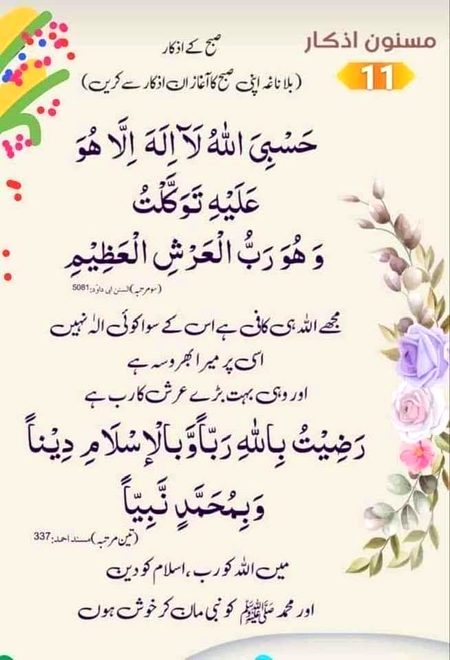 مسنون اذکار
11
صبح کے اذکار
(بلا ناغہ اپنی صبح کا آغاز ان اذکار سے کریں)
حَسْبِیَ اللّٰہُ لَآ اِلٰہَ اِلَّا ھُوَ
عَلَیْہِ تَوَکَّلْتُ
وَھُوَ رَبُّ الْعَرْشِ الْعَظِیْمِ
(سو مرتبہ) السنن ابی داؤد: 5081
مجھے اللہ ہی کافی ہے اس کے سوا کوئی الٰہ نہیں
اسی پر میرا بھروسہ ہے
اور وہی بہت بڑے عرش کا رب ہے
رَضِیْتُ بِاللّٰہِ رَبّاً وَّبِالْاِسْلَامِ دِیْناً
وَبِمُحَمَّدٍ نَّبِیّاً
(تین مرتبہ) مسند احمد: 337
میں اللہ کو رب، اسلام کو دین
اور محمد ﷺ کو نبی مان کر خوش ہوں